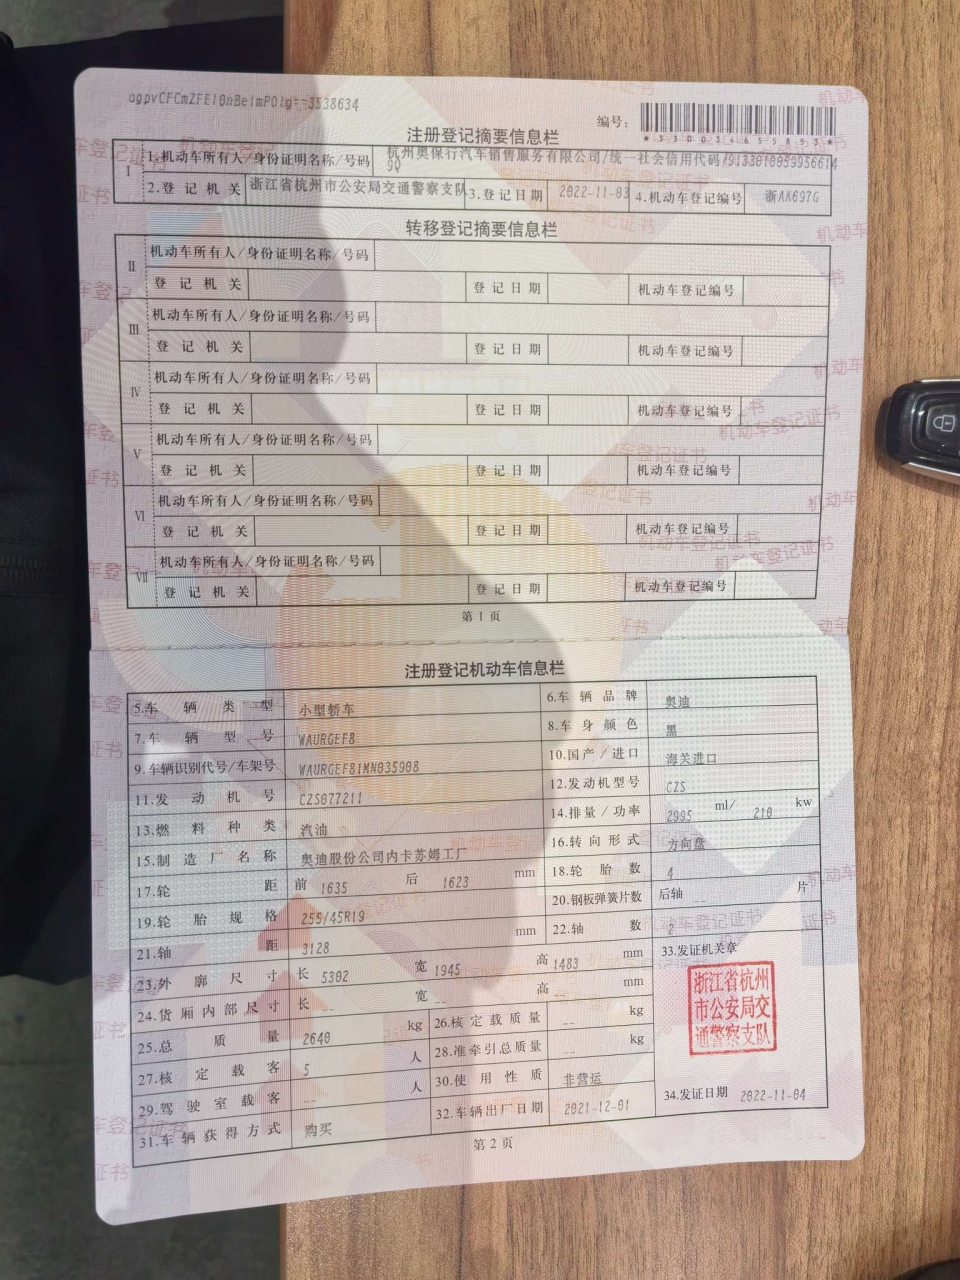 编号：
*330034655853*
注册登记摘要信息栏
Ⅰ 1.机动车所有人/身份证明名称/号码 杭州奥保行汽车销售服务有限公司/统一社会信用代码/9133010059956614
9Q
2.登记机关 浙江省杭州市公安局交通警察支队 3.登记日期 2022-11-03 4.机动车登记编号 浙AK697G
转移登记摘要信息栏
Ⅱ 机动车所有人/身份证明名称/号码
登记机关 登记日期 机动车登记编号
Ⅲ 机动车所有人/身份证明名称/号码
登记机关 登记日期 机动车登记编号
Ⅳ 机动车所有人/身份证明名称/号码
登记机关 登记日期 机动车登记编号
Ⅴ 机动车所有人/身份证明名称/号码
登记机关 登记日期 机动车登记编号
Ⅵ 机动车所有人/身份证明名称/号码
登记机关 登记日期 机动车登记编号
Ⅶ 机动车所有人/身份证明名称/号码
登记机关 登记日期 机动车登记编号
第1页
注册登记机动车信息栏
5.车辆类型 小型轿车 6.车辆品牌 奥迪
7.车辆型号 WAURGEF8 8.车身颜色 黑
9.车辆识别代号/车架号 WAURGEF81MN035908 10.国产/进口 海关进口
11.发动机号 CZS077211 12.发动机型号 CZS
13.燃料种类 汽油 14.排量/功率 2995 ml/ 210 kw
15.制造厂名称 奥迪股份公司内卡苏姆工厂 16.转向形式 方向盘
17.轮距 前 1635 后 1623 mm 18.轮胎数 4
19.轮胎规格 255/45R19 20.钢板弹簧片数 后轴 -- 片
21.轴距 3128 mm 22.轴数 2
23.外廓尺寸 长 5302 宽 1945 高 1483 mm 33.发证机关章
24.货厢内部尺寸 长 -- 宽 -- 高 -- mm
浙江省杭州
市公安局交
通警察支队
25.总质量 2640 kg 26.核定载质量 -- kg
27.核定载客 5 人 28.准牵引总质量 -- kg
29.驾驶室载客 -- 人 30.使用性质 非营运
31.车辆获得方式 购买 32.车辆出厂日期 2021-12-01 34.发证日期 2022-11-04
第2页